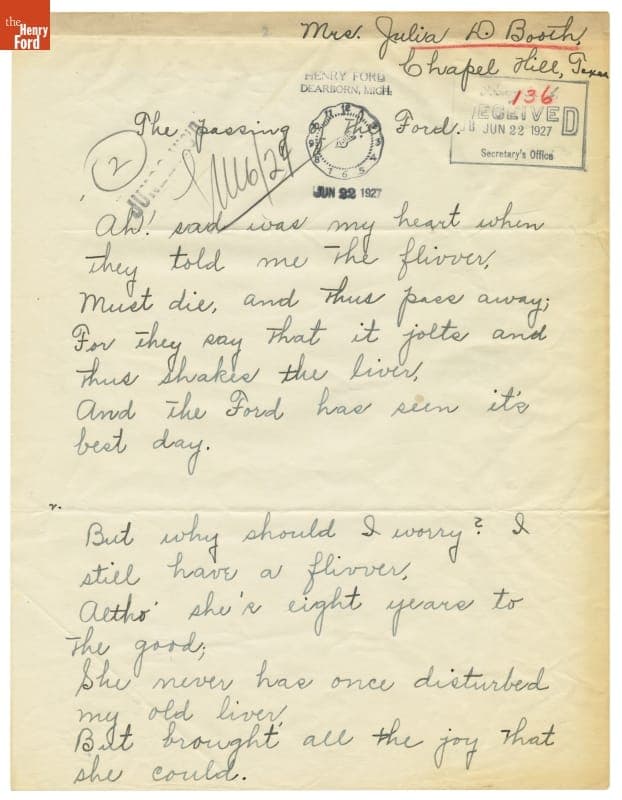 the
Henry
Ford
Mrs. Julia D. Booth,
Chapel Hill, Texas
HENRY FORD
DEARBORN, MICH.
136
RECEIVED
JUN 22 1927
Secretary's Office
The passing The Ford.
2
JUN 22 1927
Ah! sad was my heart when
they told me the flivver,
Must die, and thus pass away;
For they say that it jolts and
thus shakes the liver,
And the Ford has seen it's
best day.
2.
But why should I worry? I
still have a flivver,
Altho' she's eight years to
the good;
She never has once disturbed
my old liver,
But brought all the joy that
she could.